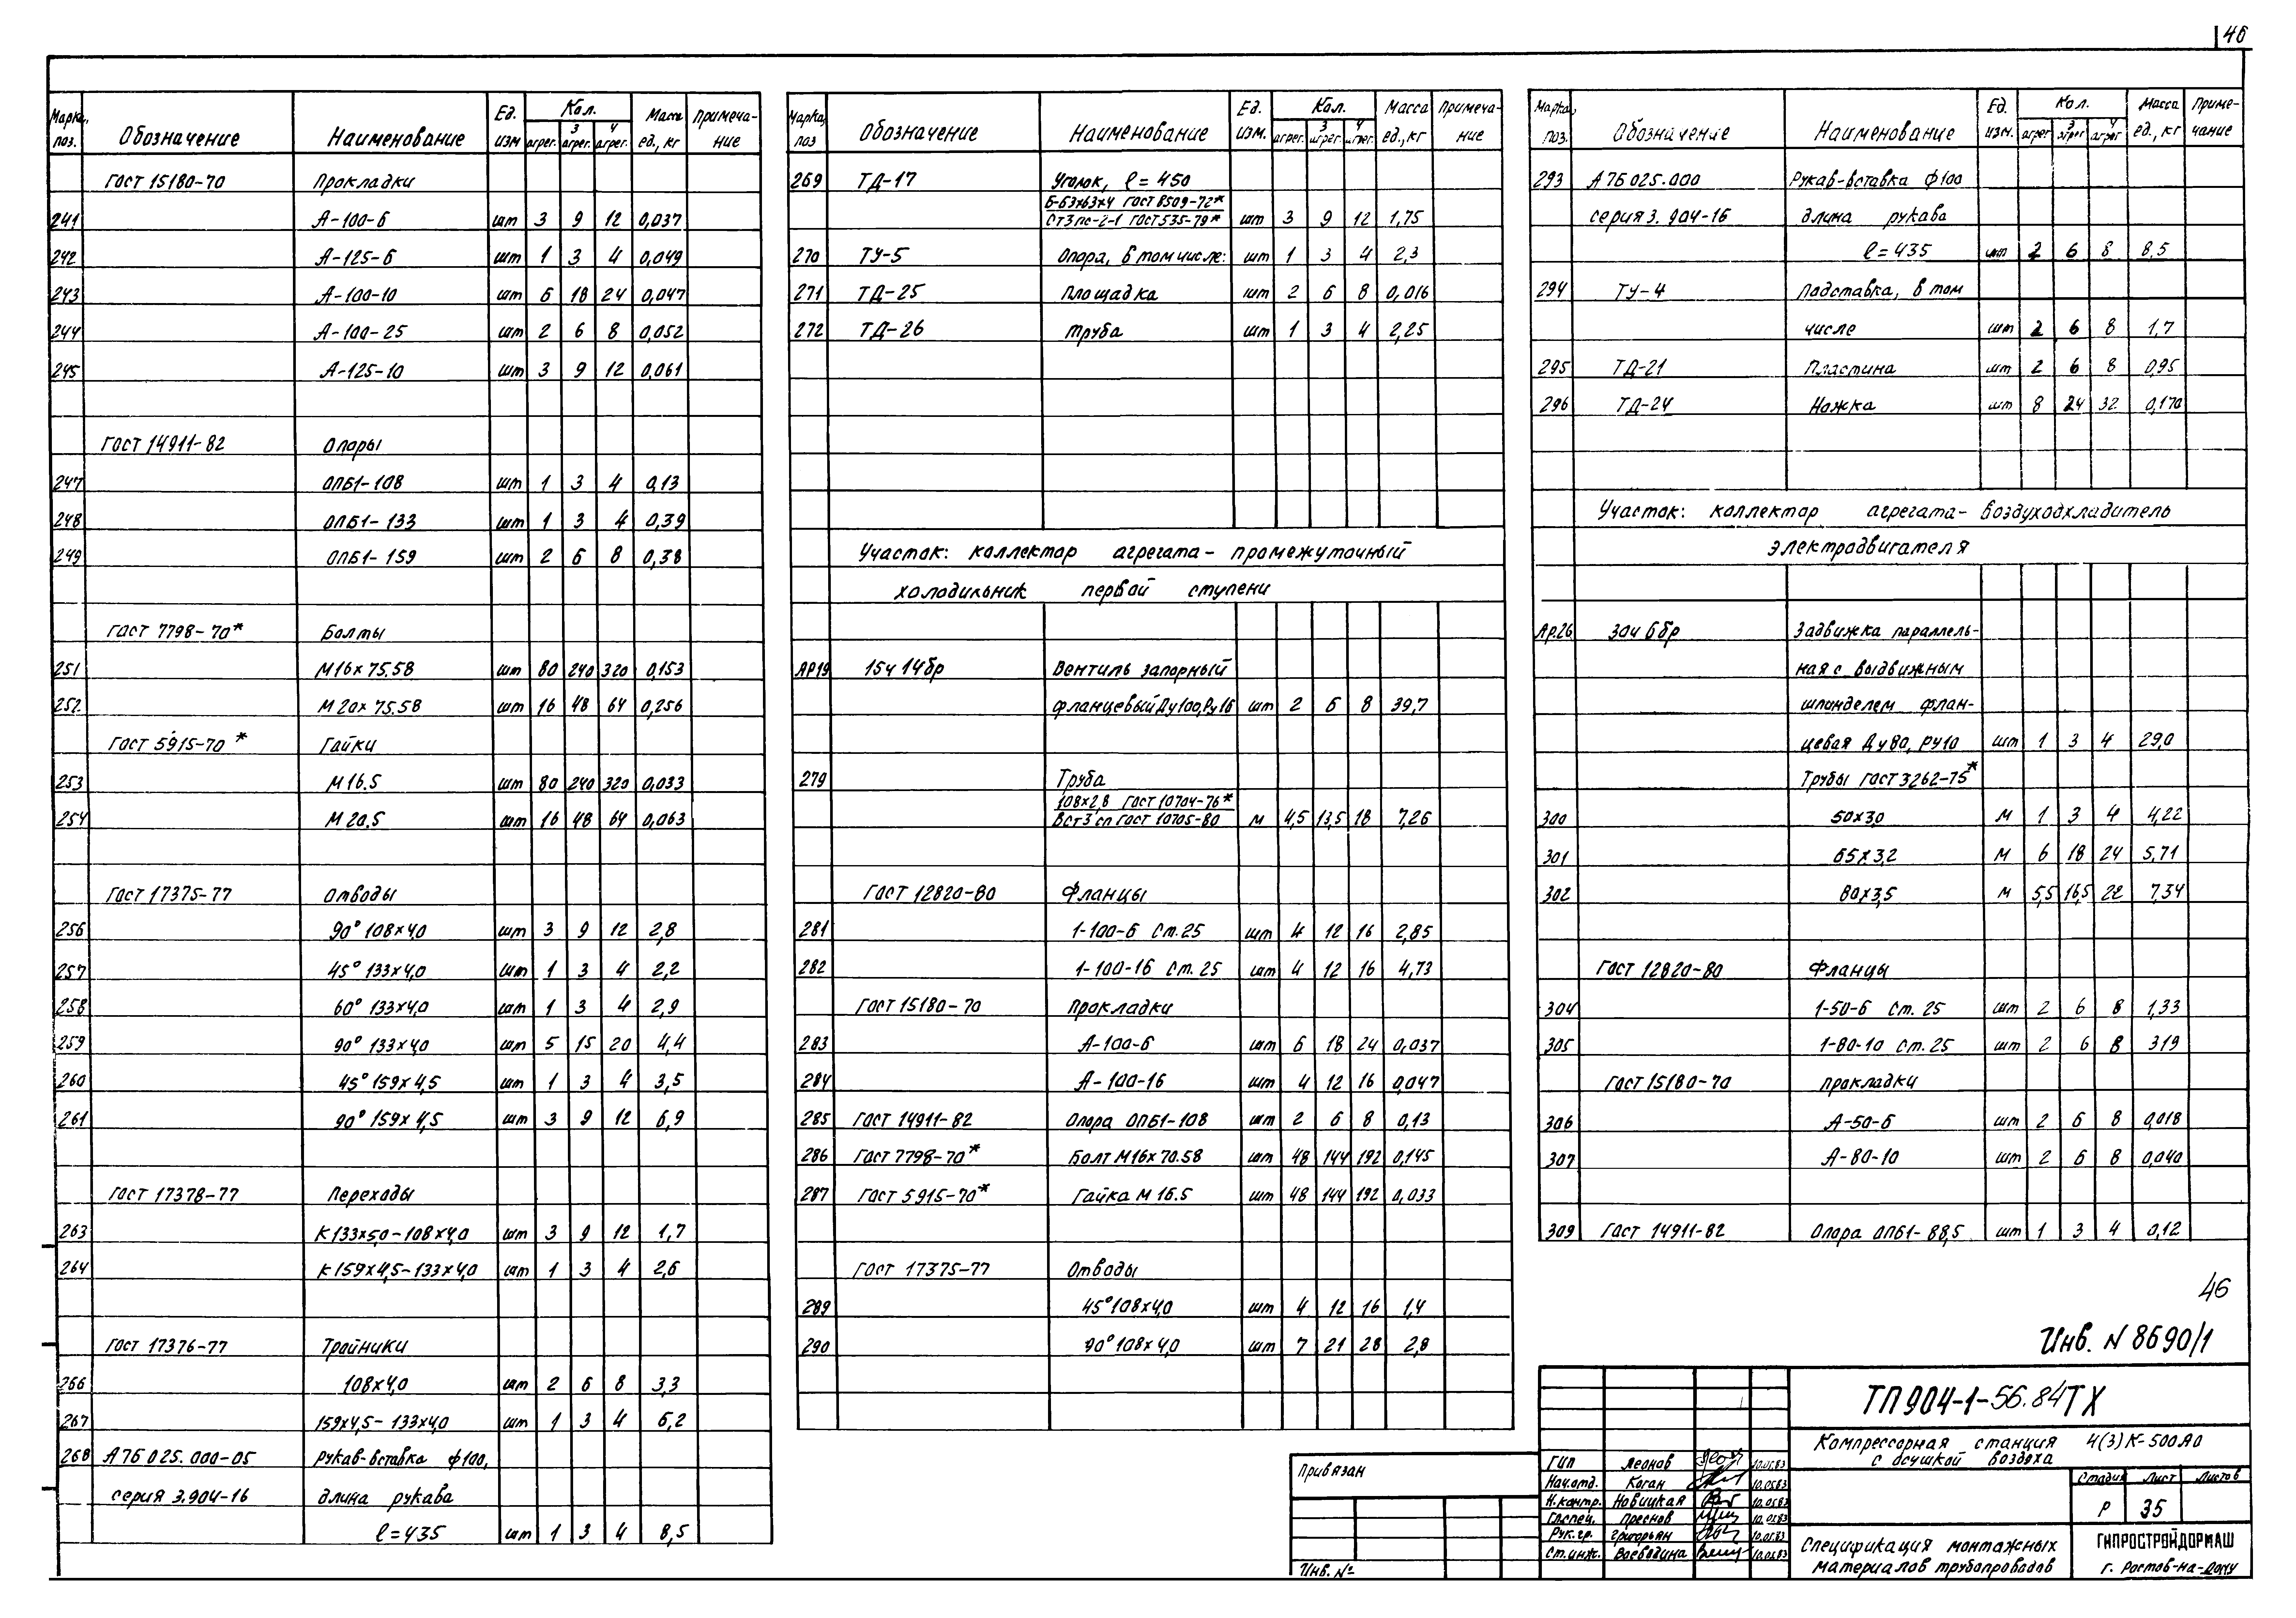 46
Марка, поз. Обозначение Наименование Ед. изм Кол. агрег. 3 агрег. 4 агрег. Масса ед., кг Примечание
ГОСТ 15180-70 Прокладки
241 А-100-6 шт 3 9 12 0,037
242 А-125-6 шт 1 3 4 0,049
243 А-100-10 шт 6 18 24 0,047
244 А-100-25 шт 2 6 8 0,052
245 А-125-10 шт 3 9 12 0,061
ГОСТ 14911-82 Опоры
247 ОПБ1-108 шт 1 3 4 0,13
248 ОПБ1-133 шт 1 3 4 0,39
249 ОПБ1-159 шт 2 6 8 0,38
ГОСТ 7798-70* Болты
251 М16х75.58 шт 80 240 320 0,153
252 М20х75.58 шт 16 48 64 0,256
ГОСТ 5915-70* Гайки
253 М16.5 шт 80 240 320 0,033
254 М20.5 шт 16 48 64 0,063
ГОСТ 17375-77 Отводы
256 90° 108х4,0 шт 3 9 12 2,8
257 45° 133х4,0 шт 1 3 4 2,2
258 60° 133х4,0 шт 1 3 4 2,9
259 90° 133х4,0 шт 5 15 20 4,4
260 45° 159х4,5 шт 1 3 4 3,5
261 90° 159х4,5 шт 3 9 12 6,9
ГОСТ 17378-77 Переходы
263 К133х5,0-108х4,0 шт 3 9 12 1,7
264 К159х4,5-133х4,0 шт 1 3 4 2,6
ГОСТ 17376-77 Тройники
266 108х4,0 шт 2 6 8 3,3
267 159х4,5-133х4,0 шт 1 3 4 6,2
268 А7Б 025.000-05 рукав-вставка ф100,
серия 3.904-16 длина рукава
ℓ=435 шт 1 3 4 8,5
Марка, поз Обозначение Наименование Ед. изм. Кол. агрег. 3 агрег. 4 агрег. Масса ед., кг Примечание
269 ТД-17 Уголок, ℓ=450
Б-63х63х4 ГОСТ 8509-72*
Ст3пс-2-1 ГОСТ 535-79* шт 3 9 12 1,75
270 ТУ-5 Опора, в том числе: шт 1 3 4 2,3
271 ТД-25 Площадка шт 2 6 8 0,016
272 ТД-26 Труба шт 1 3 4 2,25
Участок: коллектор агрегата-промежуточный
холодильник первой ступени
АР19 15ч 14бр Вентиль запорный
фланцевый Ду100, Ру16 шт 2 6 8 39,7
279 Труба
108х2,8 ГОСТ 10704-76*
ВСт3сп ГОСТ 10705-80 м 4,5 13,5 18 7,26
ГОСТ 12820-80 Фланцы
281 1-100-6 Ст.25 шт 4 12 16 2,85
282 1-100-16 Ст.25 шт 4 12 16 4,73
ГОСТ 15180-70 Прокладки
283 А-100-6 шт 6 18 24 0,037
284 А-100-16 шт 4 12 16 0,047
285 ГОСТ 14911-82 Опора ОПБ1-108 шт 2 6 8 0,13
286 ГОСТ 7798-70* Болт М16х70.58 шт 48 144 192 0,145
287 ГОСТ 5915-70* Гайка М16.5 шт 48 144 192 0,033
ГОСТ 17375-77 Отводы
289 45° 108х4,0 шт 4 12 16 1,4
290 90° 108х4,0 шт 7 21 28 2,8
Марка, поз. Обозначение Наименование Ед. изм. Кол. агрег 3 агрег 4 агрег Масса ед., кг Примечание
293 А7Б 025.000 Рукав-вставка ф100
серия 3.904-16 длина рукава
ℓ=435 шт 2 6 8 8,5
294 ТУ-4 Подставка, в том
числе шт 2 6 8 1,7
295 ТД-21 Пластина шт 2 6 8 0,95
296 ТД-24 Ножка шт 8 24 32 0,170
Участок: коллектор агрегата-воздухоохладитель
электродвигателя
Ар.26 30ч 6бр Задвижка параллель-
ная с выдвижным
шпинделем флан-
цевая Ду80, Ру10 шт 1 3 4 29,0
Трубы ГОСТ 3262-75*
300 50х3,0 м 1 3 4 4,22
301 65х3,2 м 6 18 24 5,71
302 80х3,5 м 5,5 16,5 22 7,34
ГОСТ 12820-80 Фланцы
304 1-50-6 Ст.25 шт 2 6 8 1,33
305 1-80-10 Ст.25 шт 2 6 8 3,19
ГОСТ 15180-70 прокладки
306 А-50-6 шт 2 6 8 0,018
307 А-80-10 шт 2 6 8 0,040
309 ГОСТ 14911-82 Опора ОПБ1-88,5 шт 1 3 4 0,12
46
Инв. N 8690/1
Привязан
Инв. №
ТП 904-1-56.84 ТХ
Компрессорная станция 4(3)К-500АО
с осушкой воздуха
ГИП Леонов 10.05.83
Нач.отд. Коган 10.05.83
Н.контр. Новицкая 10.05.83
Гл.спец. Преснов 10.05.83
Рук.гр. Григорьян 10.05.83
Ст.инж. Воеводина 10.05.83
Стадия Лист Листов
Р 35
Спецификация монтажных
материалов трубопроводов
ГИПРОСТРОЙДОРМАШ
г. Ростов-на-Дону